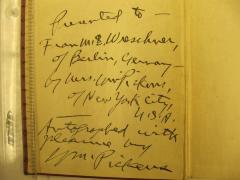 Presented to —
Frau M. B. Wreschner,
of Berlin, Germany —
by Mrs. Wm Pickens,
of New York City,
U.S.A.
Autographed with
pleasure by
Wm Pickens